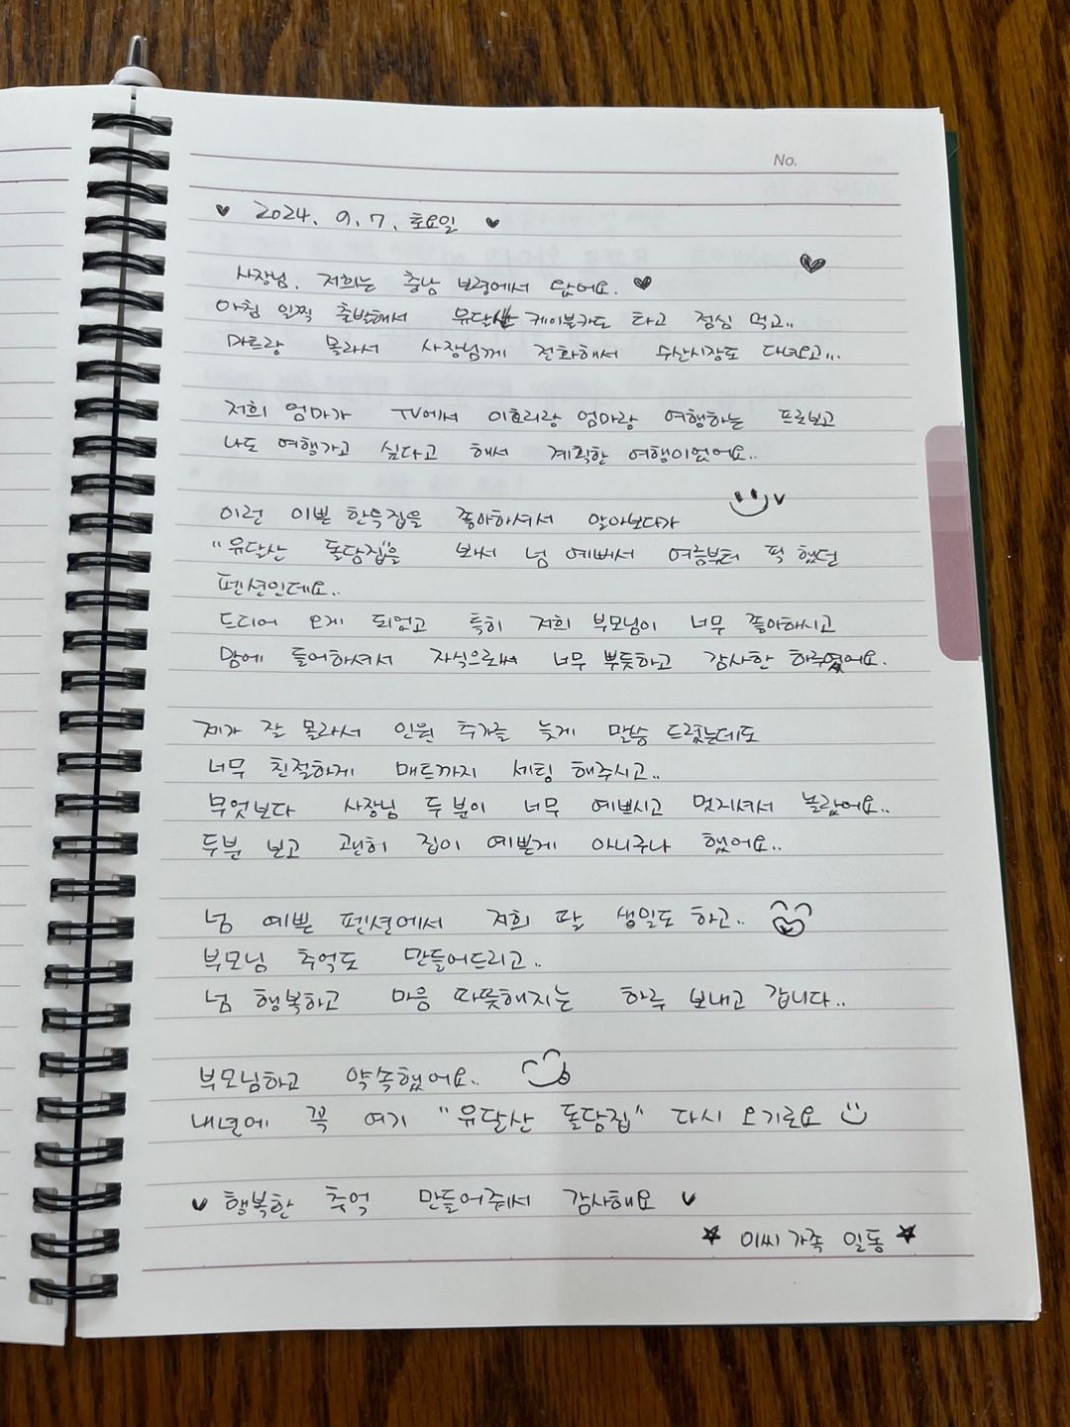 No.
♥ 2024. 9. 7. 토요일 ♥
사장님. 저희는 충남 보령에서 왔어요. ♥
아침 일찍 출발해서 유달산 케이블카도 타고 점심 먹고..
마르랑 몰라서 사장님께 전화해서 수산시장도 다녀오고...
저희 엄마가 TV에서 이효리랑 엄마랑 여행하는 프로보고
나도 여행가고 싶다고 해서 계획한 여행이었어요..
이런 이쁜 한옥집을 좋아하셔서 알아보다가
"유달산 돌담집"을 봐서 넘 예뻐서 여름부터 픽 했던
펜션인데요..
드디어 오게 되었고 특히 저희 부모님이 너무 좋아해시고
맘에 들어하셔서 자식으로써 너무 뿌듯하고 감사한 하루였어요.
제가 잘 몰라서 인원 추가를 늦게 말씀 드렸는데도
너무 친절하게 매트까지 세팅 해주시고..
무엇보다 사장님 두 분이 너무 예쁘시고 멋지셔서 놀랐어요..
두분 보고 괜히 집이 예쁜게 아니구나 했어요..
넘 예쁜 펜션에서 저희 딸 생일도 하고..
부모님 추억도 만들어드리고..
넘 행복하고 마음 따뜻해지는 하루 보내고 갑니다..
부모님하고 약속했어요..
내년에 꼭 여기 "유달산 돌담집" 다시 오기로요
♥ 행복한 추억 만들어줘서 감사해요 ♥
★ 이씨 가족 일동 ★